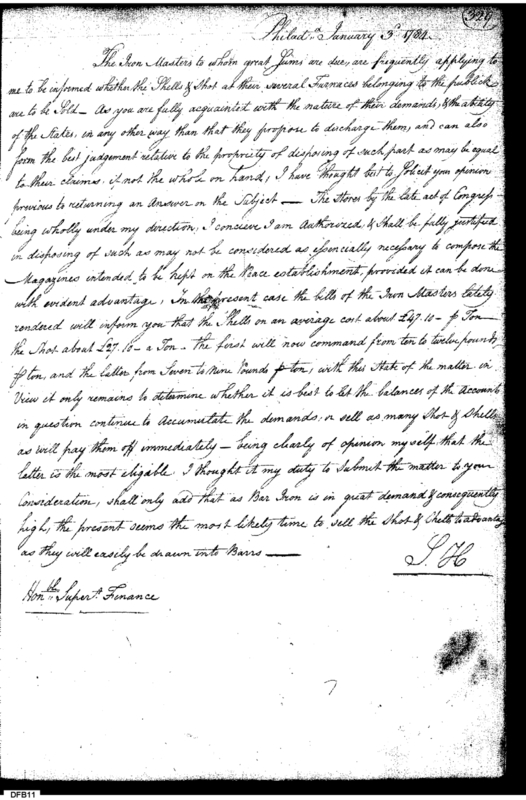 329
Philad.a January 3d 1784.
The Iron Masters to whom great Sums are due, are frequently applying to
me to be informed whether the Shells & Shot at their several Furnaces belonging to the publick
are to be Sold — As you are fully acquainted with the nature of their demands, & the ability
of the States, in any other way than that they propose to discharge them, and can also
form the best judgement relative to the propriety of disposing of such part as may be equal
to their claims, if not the whole on hand, I have thought best to Solicit your opinion
previous to returning an Answer on the Subject — The Stores by the late act of Congress
being wholly under my direction, I conceive I am Authorized, & Shall be fully justified
in disposing of such as may not be considered as essencially necessary to compose the
Magazines intended to be kept on the Peace establishment, provided it can be done
with evident advantage, In the present case the bills of the Iron Masters lately
rendered will inform you that the Shells on an average cost about £47.10 — p Ton —
the Shot about £27.10 — a Ton — the first will now command from ten to twelve pounds
p ton, and the latter, from Seven to Nine Pounds p ton, with this State of the matter in
View it only remains to determine whether it is best to let the balances of the Accounts
in question continue to Accumulate the demands, or sell as many Shot & Shells
as will pay them off immediately — being clearly of opinion myself that the
latter is the most eligable I thought it my duty to Submit the matter to your
Consideration, shall only add that as Bar Iron is in great demand & consequently
high, the present seems the most likely time to sell the Shot & Shells to advantage
as they will easily be drawn into Barrs —
S. H
Honble Supert. Finance
DFB11